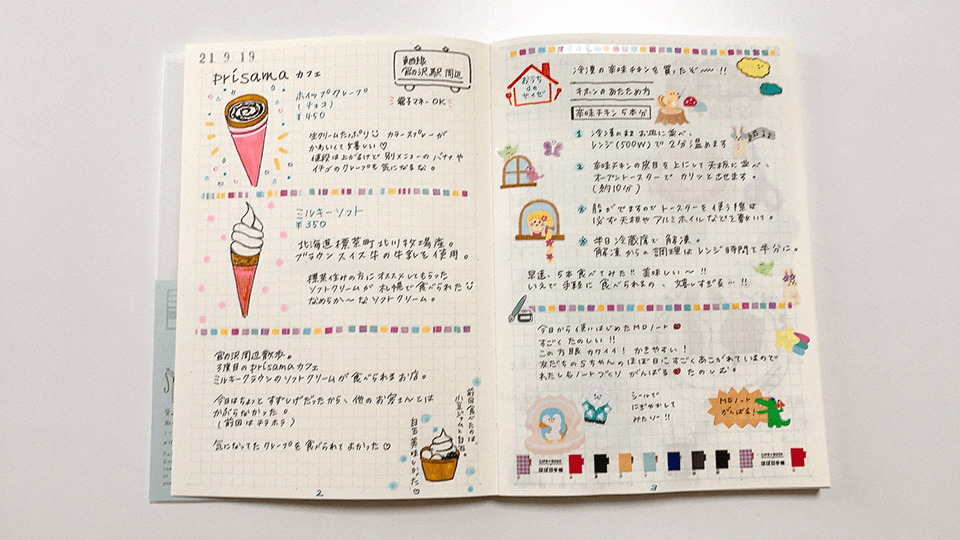 21 9 19
prisama カフェ
東西線
宮の沢駅 周辺
電子マネーOK
ホイップクレープ
(チョコ)
¥450
生クリームたっぷり
カラースプレーが
かわいくて嬉しい♡
値段は上がるけど 別メニューの バナナや
イチゴのクレープも 気になるな。
ミルキーソフト
¥350
北海道 標茶町 北川牧場産。
ブラウンスイス牛の牛乳を使用。
標茶住みの方に オススメしてもらった
ソフトクリームが 札幌で食べられた
なめらか〜な ソフトクリーム。
宮の沢周辺散歩。
3度目のprisamaカフェ
ミルキークラウンのソフトクリームが 食べられるお店。
今日はちょっと すずしげだったから、他のお客さんとは
かぶらなかった。
(前回は チラホラ)
気になってた クレープを 食べられて よかった♡
前回食べたのは、
小豆ジャムと白玉。
白玉 美味しかった♡
2
おうち
de
サイゼ
冷凍の辛味チキンを買ったぞ〜!!
キホンのあたため方
辛味チキン5本分
1 冷凍のまま お皿に並べ、
レンジ(500W)で 2分温めます
2 辛味チキンの皮目を上にして天板に並べ、
オーブントースターで カリッとさせます。
(約10分)
※ 脂がでますので トースターを使う際は
必ず天板やアルミホイルなどを敷いて。
※ 半日 冷蔵庫で 解凍。
解凍からの調理は レンジ時間を半分に。
早速、5本食べてみた!! 美味しい〜!!
いえで手軽に 食べられるの、嬉しすぎる…!!
今日から使いはじめたMDノート
すごく たのしい!!
この方眼 カワイイ! かきやすい!
友だちのSちゃんのほぼ日にすごくあこがれているので
わたしもノートづくり がんばる たのしむ。
シールで
にぎやかして
みたゾ!!
MDノート
がんばる!
LIFEのBOOK
ほぼ日手帳
LIFEのBOOK
ほぼ日手帳
3